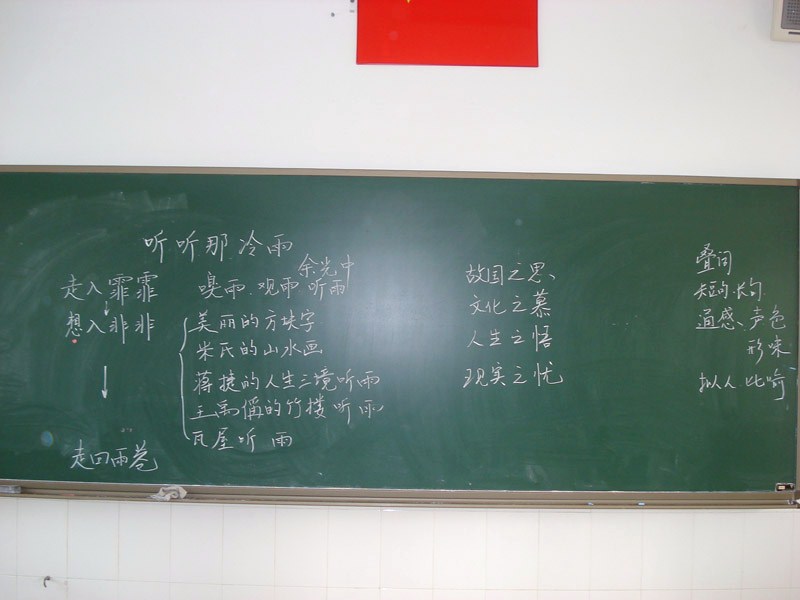 听听那冷雨
余光中
走入霏霏
想入非非
走回雨巷
嗅雨 观雨 听雨
美丽的方块字
米氏的山水画
蒋捷的人生三境听雨
王禹偁的竹楼听雨
瓦屋听雨
故国之思
文化之慕
人生之悟
现实之忧
叠词
短句 长句
通感、声色
形味
拟人 比喻